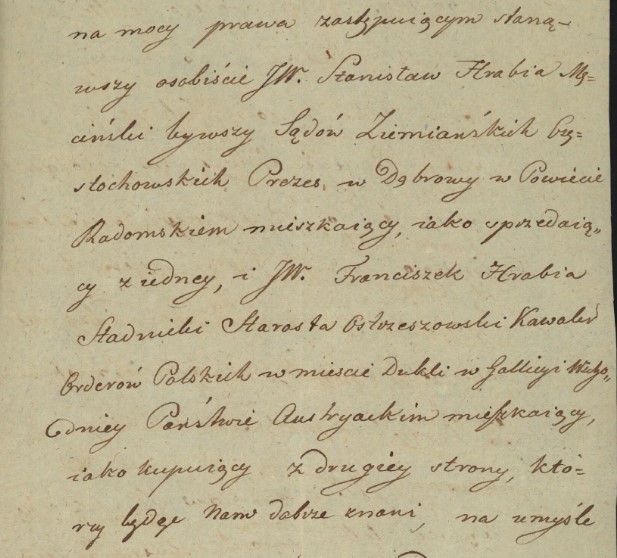 na mocy prawa zastępuiącym staną-
wszy osobiście JW. Stanisław Hrabia Mę-
ciński bywszy Sądów Ziemiańskich Czę-
stochowskich Prezes, w Dąbrowy w Powiecie
Radomskiem mieszkaiący, iako sprzedaią„
cy z iedney, i JW. Franciszek Hrabia
Stadnicki Starosta Ostrzeszowski Kawaler
Orderów Polskich w mieście Dukli w Gallicyi Wscho„
dniey Państwie Austryackim mieszkaiący,
iako kupuiący z drugiey strony, któ-
rzy będąc Nam dobrze znani, na umyśle